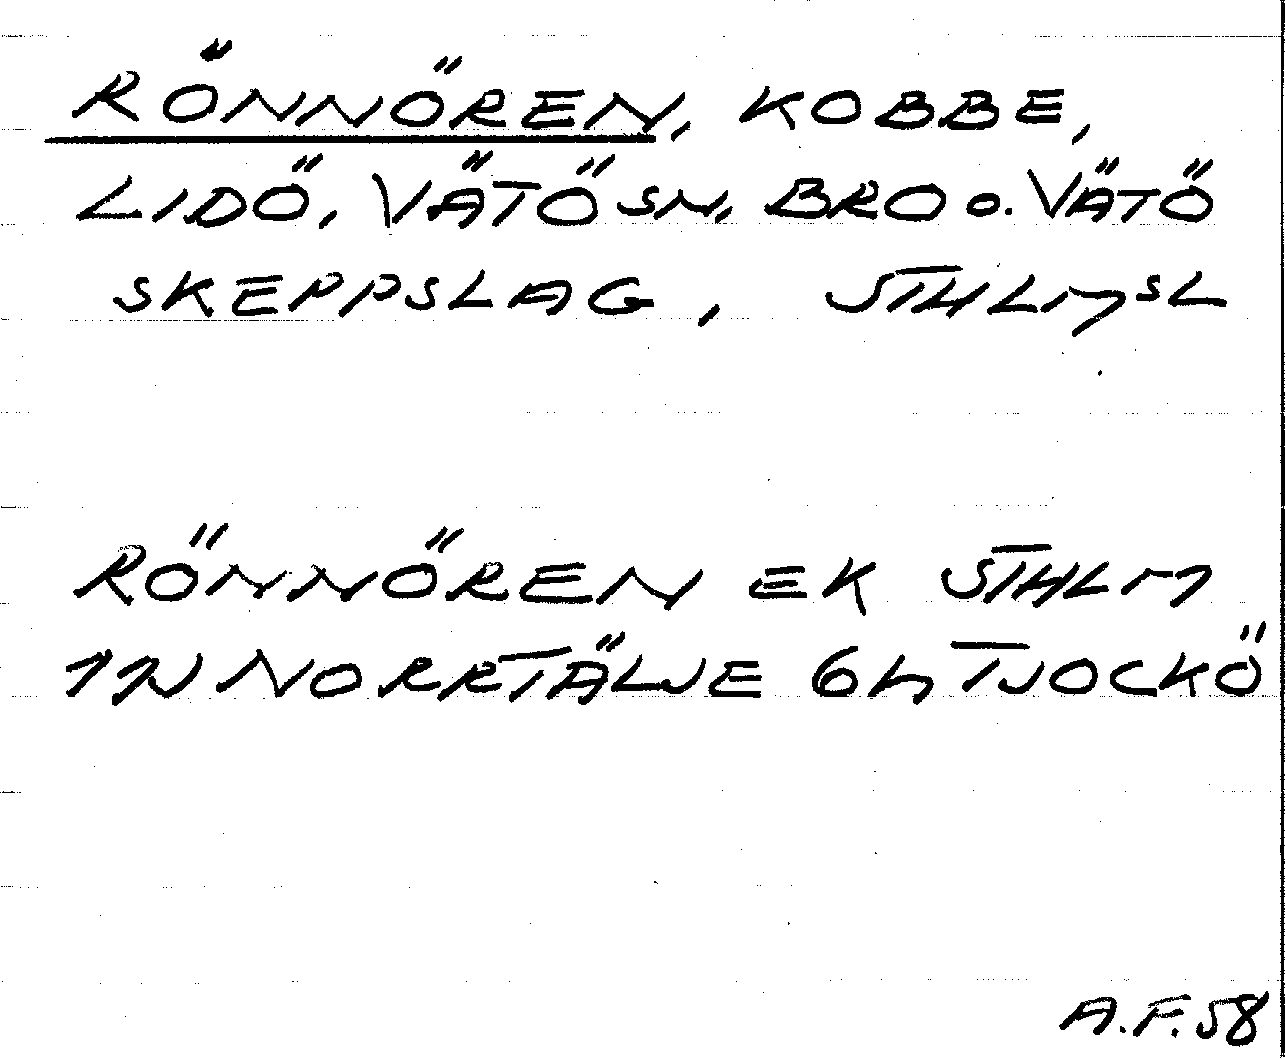 RÖNNÖREN, KOBBE,
LIDÖ, VÄTÖ SN, BRO o. VÄTÖ
SKEPPSLAG, STHLMS L
RÖNNÖREN EK STHLM
11J NORRTÄLJE 6h TJOCKÖ
A.F. 58